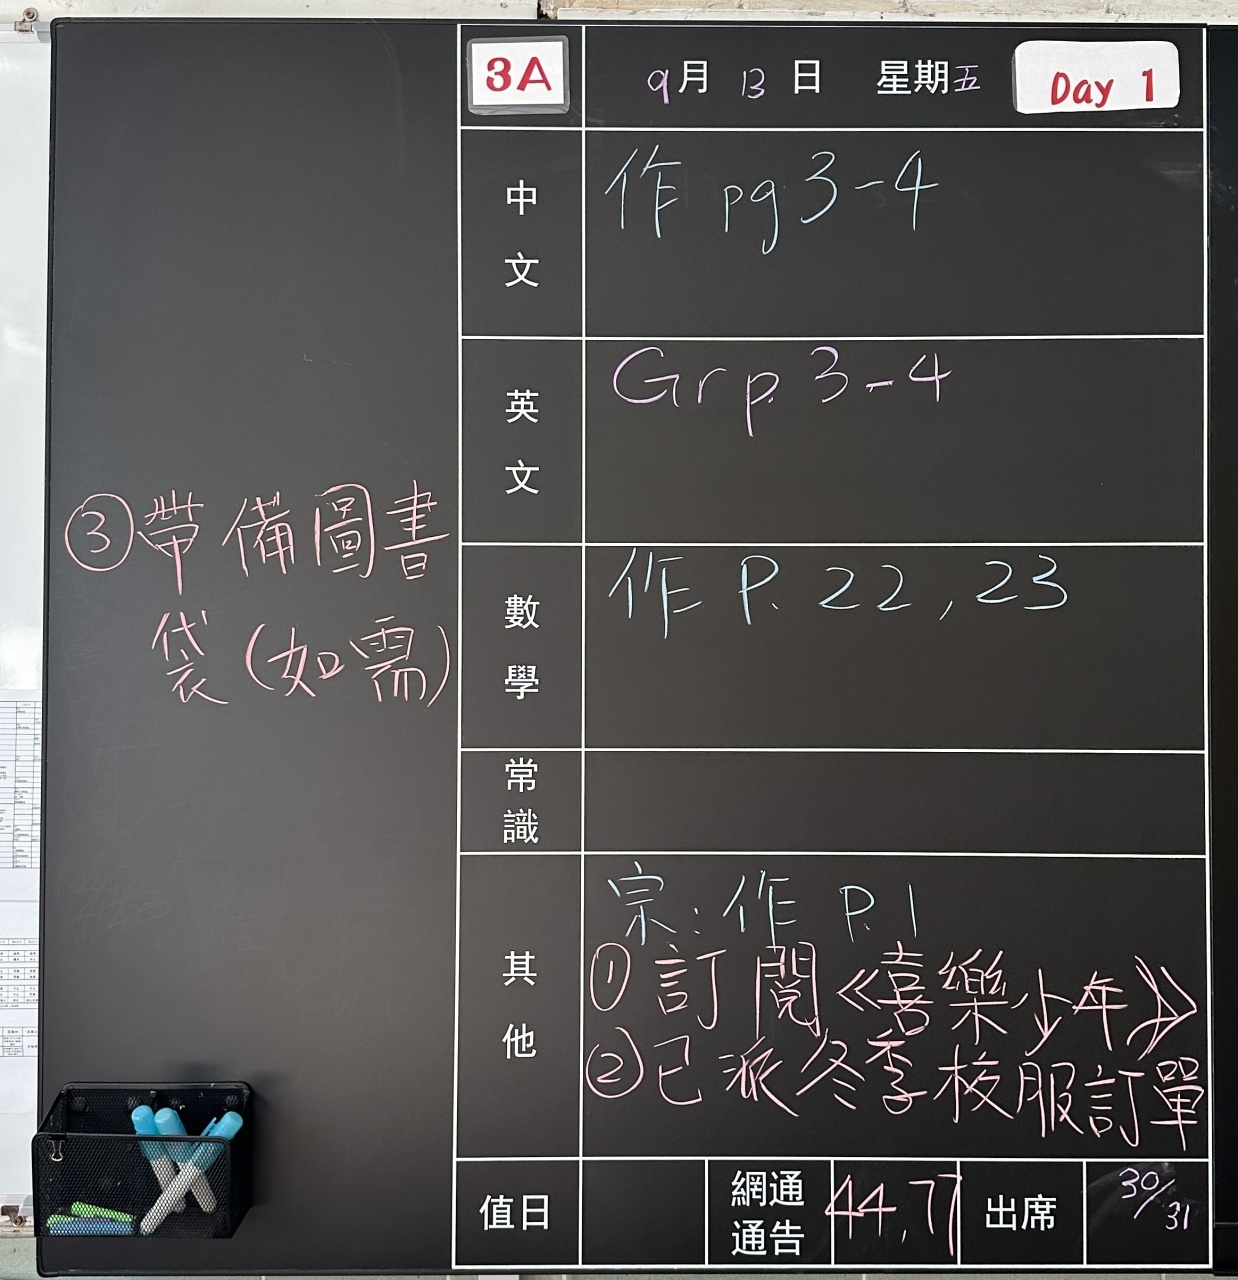 3A
9月13日 星期五 Day 1
中文 作 pg 3-4
英文 Gr p. 3-4
數學 作 P. 22, 23
常識
其他 宗:作 P.1
①訂閱《喜樂少年》
②已派冬季校服訂單
③帶備圖書
袋(如需)
值日
網通通告 44,77
出席 30/31